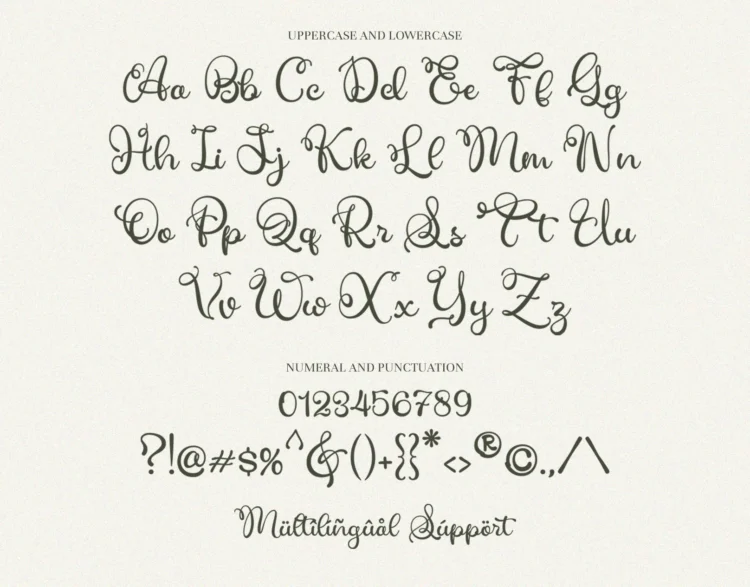 UPPERCASE AND LOWERCASE
Aa Bb Cc Dd Ee Ff Gg
Hh Ii Jj Kk Ll Mm Nn
Oo Pp Qq Rr Ss Tt Uu
Vv Ww Xx Yy Zz
NUMERAL AND PUNCTUATION
0123456789
?!@#$%^&()+{}*<>®©.,/\
Mültilíñgûål Súppört